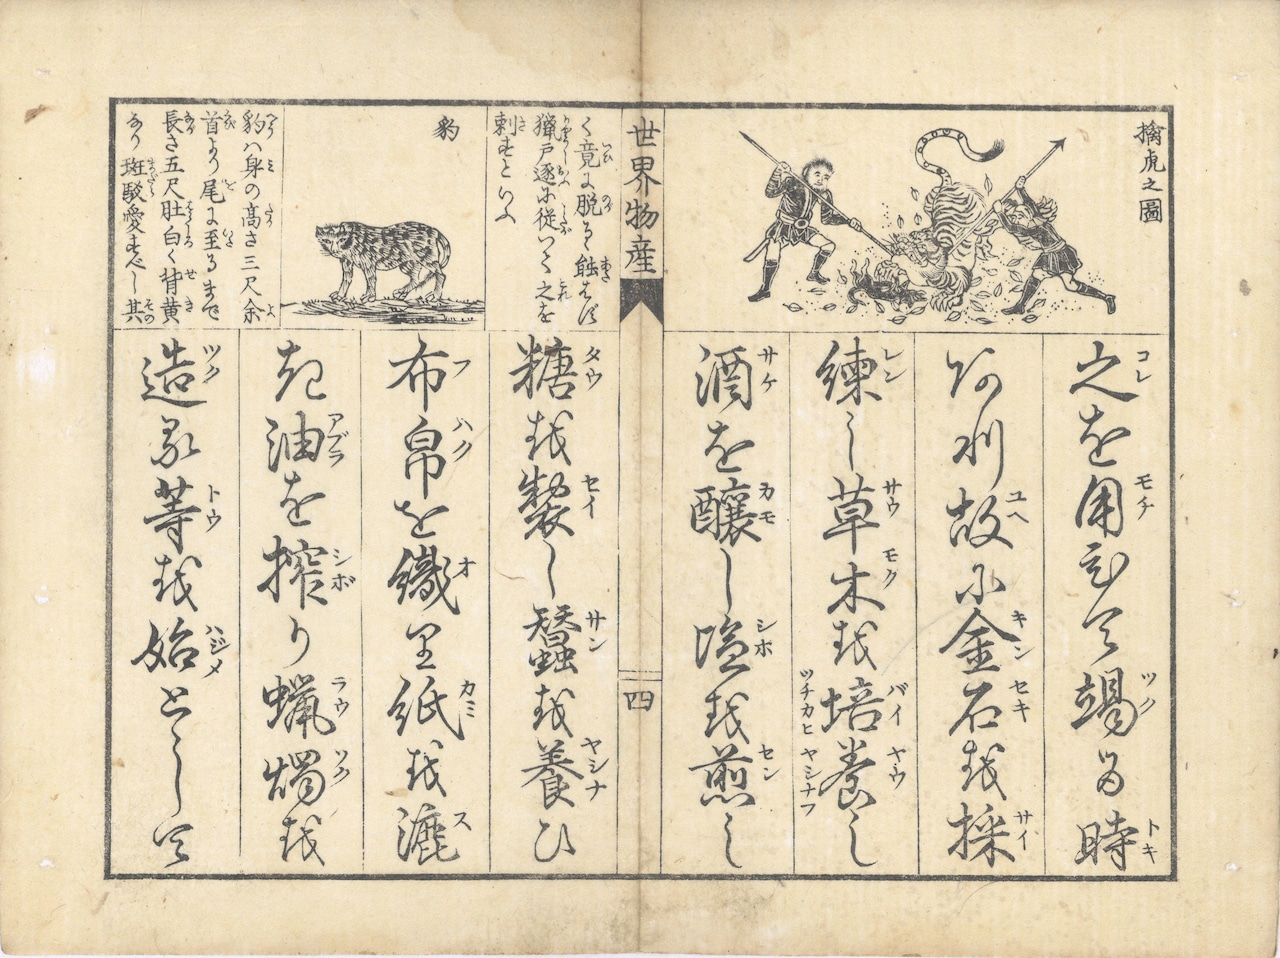 擒虎之圖
之を用ひて竭る時
あり故に金石を採
練し草木を培養し
酒を醸し塩を煎し
世界物産
四
く竟に脱る能はず
獵戸遂に従つて之を
刺すといふ
豹
豹ハ身の高さ三尺余
首より尾に至るまで
長さ五尺肚白く背黄
なり斑駁愛すべし其
糖を製し蠶を養ひ
布帛を織り紙を漉
き油を搾り蝋燭を
造る等を始として